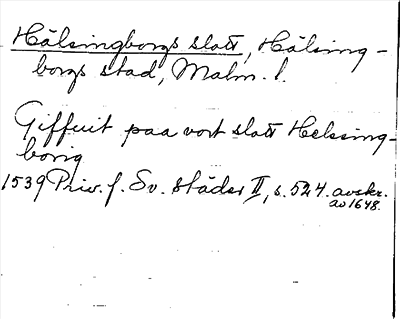 Hälsingborgs slott, Hälsing-
borgs stad, Malm. l.
Giffuit paa vort slott Helssing-
borig
1539 Priv. f. Sv. städer II, s. 524. avskr.
av 1648.